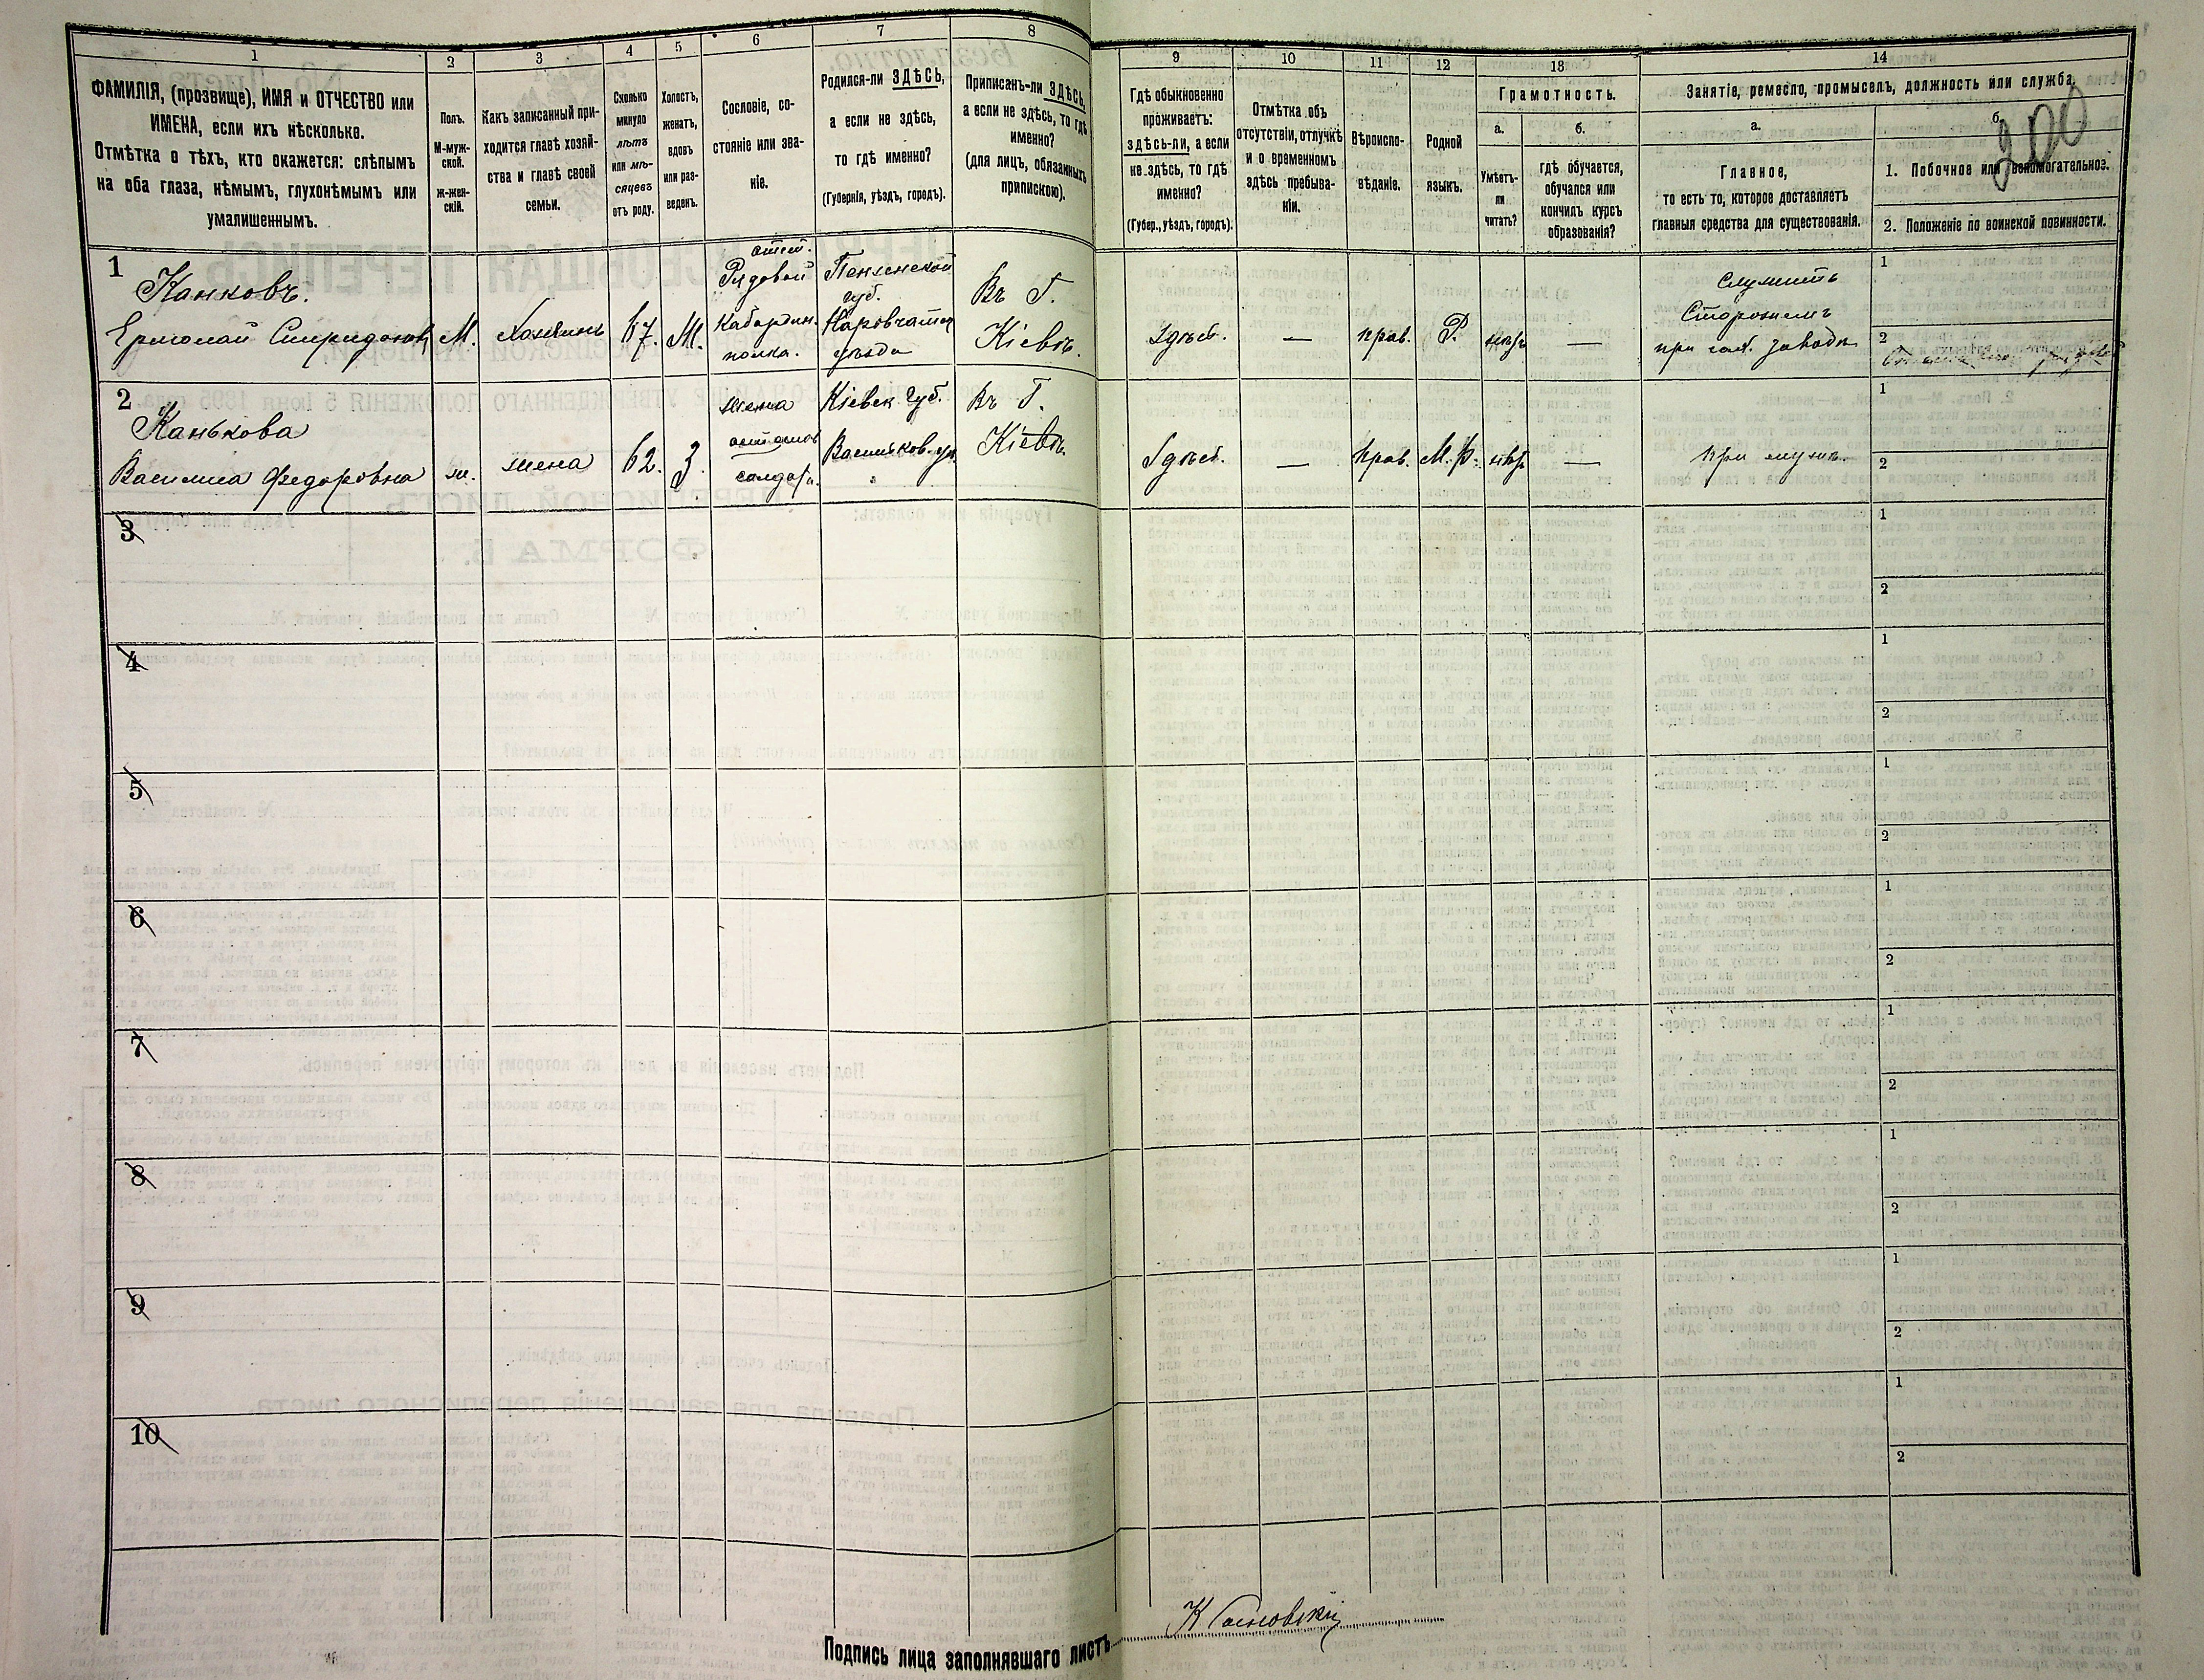 1
2
3
4
5
6
7
8
9
10
11
12
13
14
ФАМИЛІЯ, (прозвище), ИМЯ и ОТЧЕСТВО или
ИМЕНА, если ихъ нѣсколько.
Отмѣтка о тѣхъ, кто окажется: слѣпымъ
на оба глаза, нѣмымъ, глухонѣмымъ или
умалишеннымъ.
Полъ.
М-муж-
ской.
ж-жен-
скій.
Какъ записанный при-
ходится главѣ хозяй-
ства и главѣ своей
семьи.
Сколько
минуло
лѣтъ
или мѣ-
сяцевъ
отъ роду.
Холостъ,
женатъ,
вдовъ
или раз-
веденъ.
Сословіе, со-
стояніе или зва-
ніе.
Родился-ли ЗДѢСЬ,
а если не здѣсь,
то гдѣ именно?
(Губернія, уѣздъ, городъ).
Приписанъ-ли ЗДѢСЬ,
а если не здѣсь, то гдѣ
именно?
(для лицъ, обязанныхъ
припискою).
Гдѣ обыкновенно
проживаетъ:
здѣсь-ли, а если
не здѣсь, то гдѣ
именно?
(Губер., уѣздъ, городъ).
Отмѣтка объ
отсутствіи, отлучкѣ
и о временномъ
здѣсь пребыва-
ніи.
Вѣроиспо-
вѣданіе.
Родной
языкъ.
Грамотность.
а.
Умѣетъ-
ли
читать?
б.
гдѣ обучается,
обучался или
кончилъ курсъ
образованія?
Занятіе, ремесло, промыселъ, должность или служба.
а.
Главное,
то есть то, которое доставляетъ
главныя средства для существованія.
б.
200
1. Побочное или вспомогательное.
2. Положеніе по воинской повинности.
1
Канковъ.
Ермолай Спиридонов
М.
Хозяинъ
67.
М.
отст.
Рядовой
Кабардин.
полка.
Пензенской
губ.
Наровчатск
уѣзда
Въ Г.
Кіевѣ.
Здѣсь.
—
прав.
Р.
нѣтъ
—
Служитъ
Сторожемъ
при заводѣ
1
2
2
Канькова
Василиса Федоровна
ж.
жена
62.
З.
жена
отставн
солдата.
Кіевск губ.
Васильков. уѣ.
Въ Г.
Кіевѣ.
Здѣсь.
—
прав.
М. Р.
нѣтъ
—
при мужѣ.
1
2
3
1
2
4
1
2
5
1
2
6
1
2
7
1
2
8
1
2
9
1
2
10
1
2
Подпись лица заполнявшаго листъ